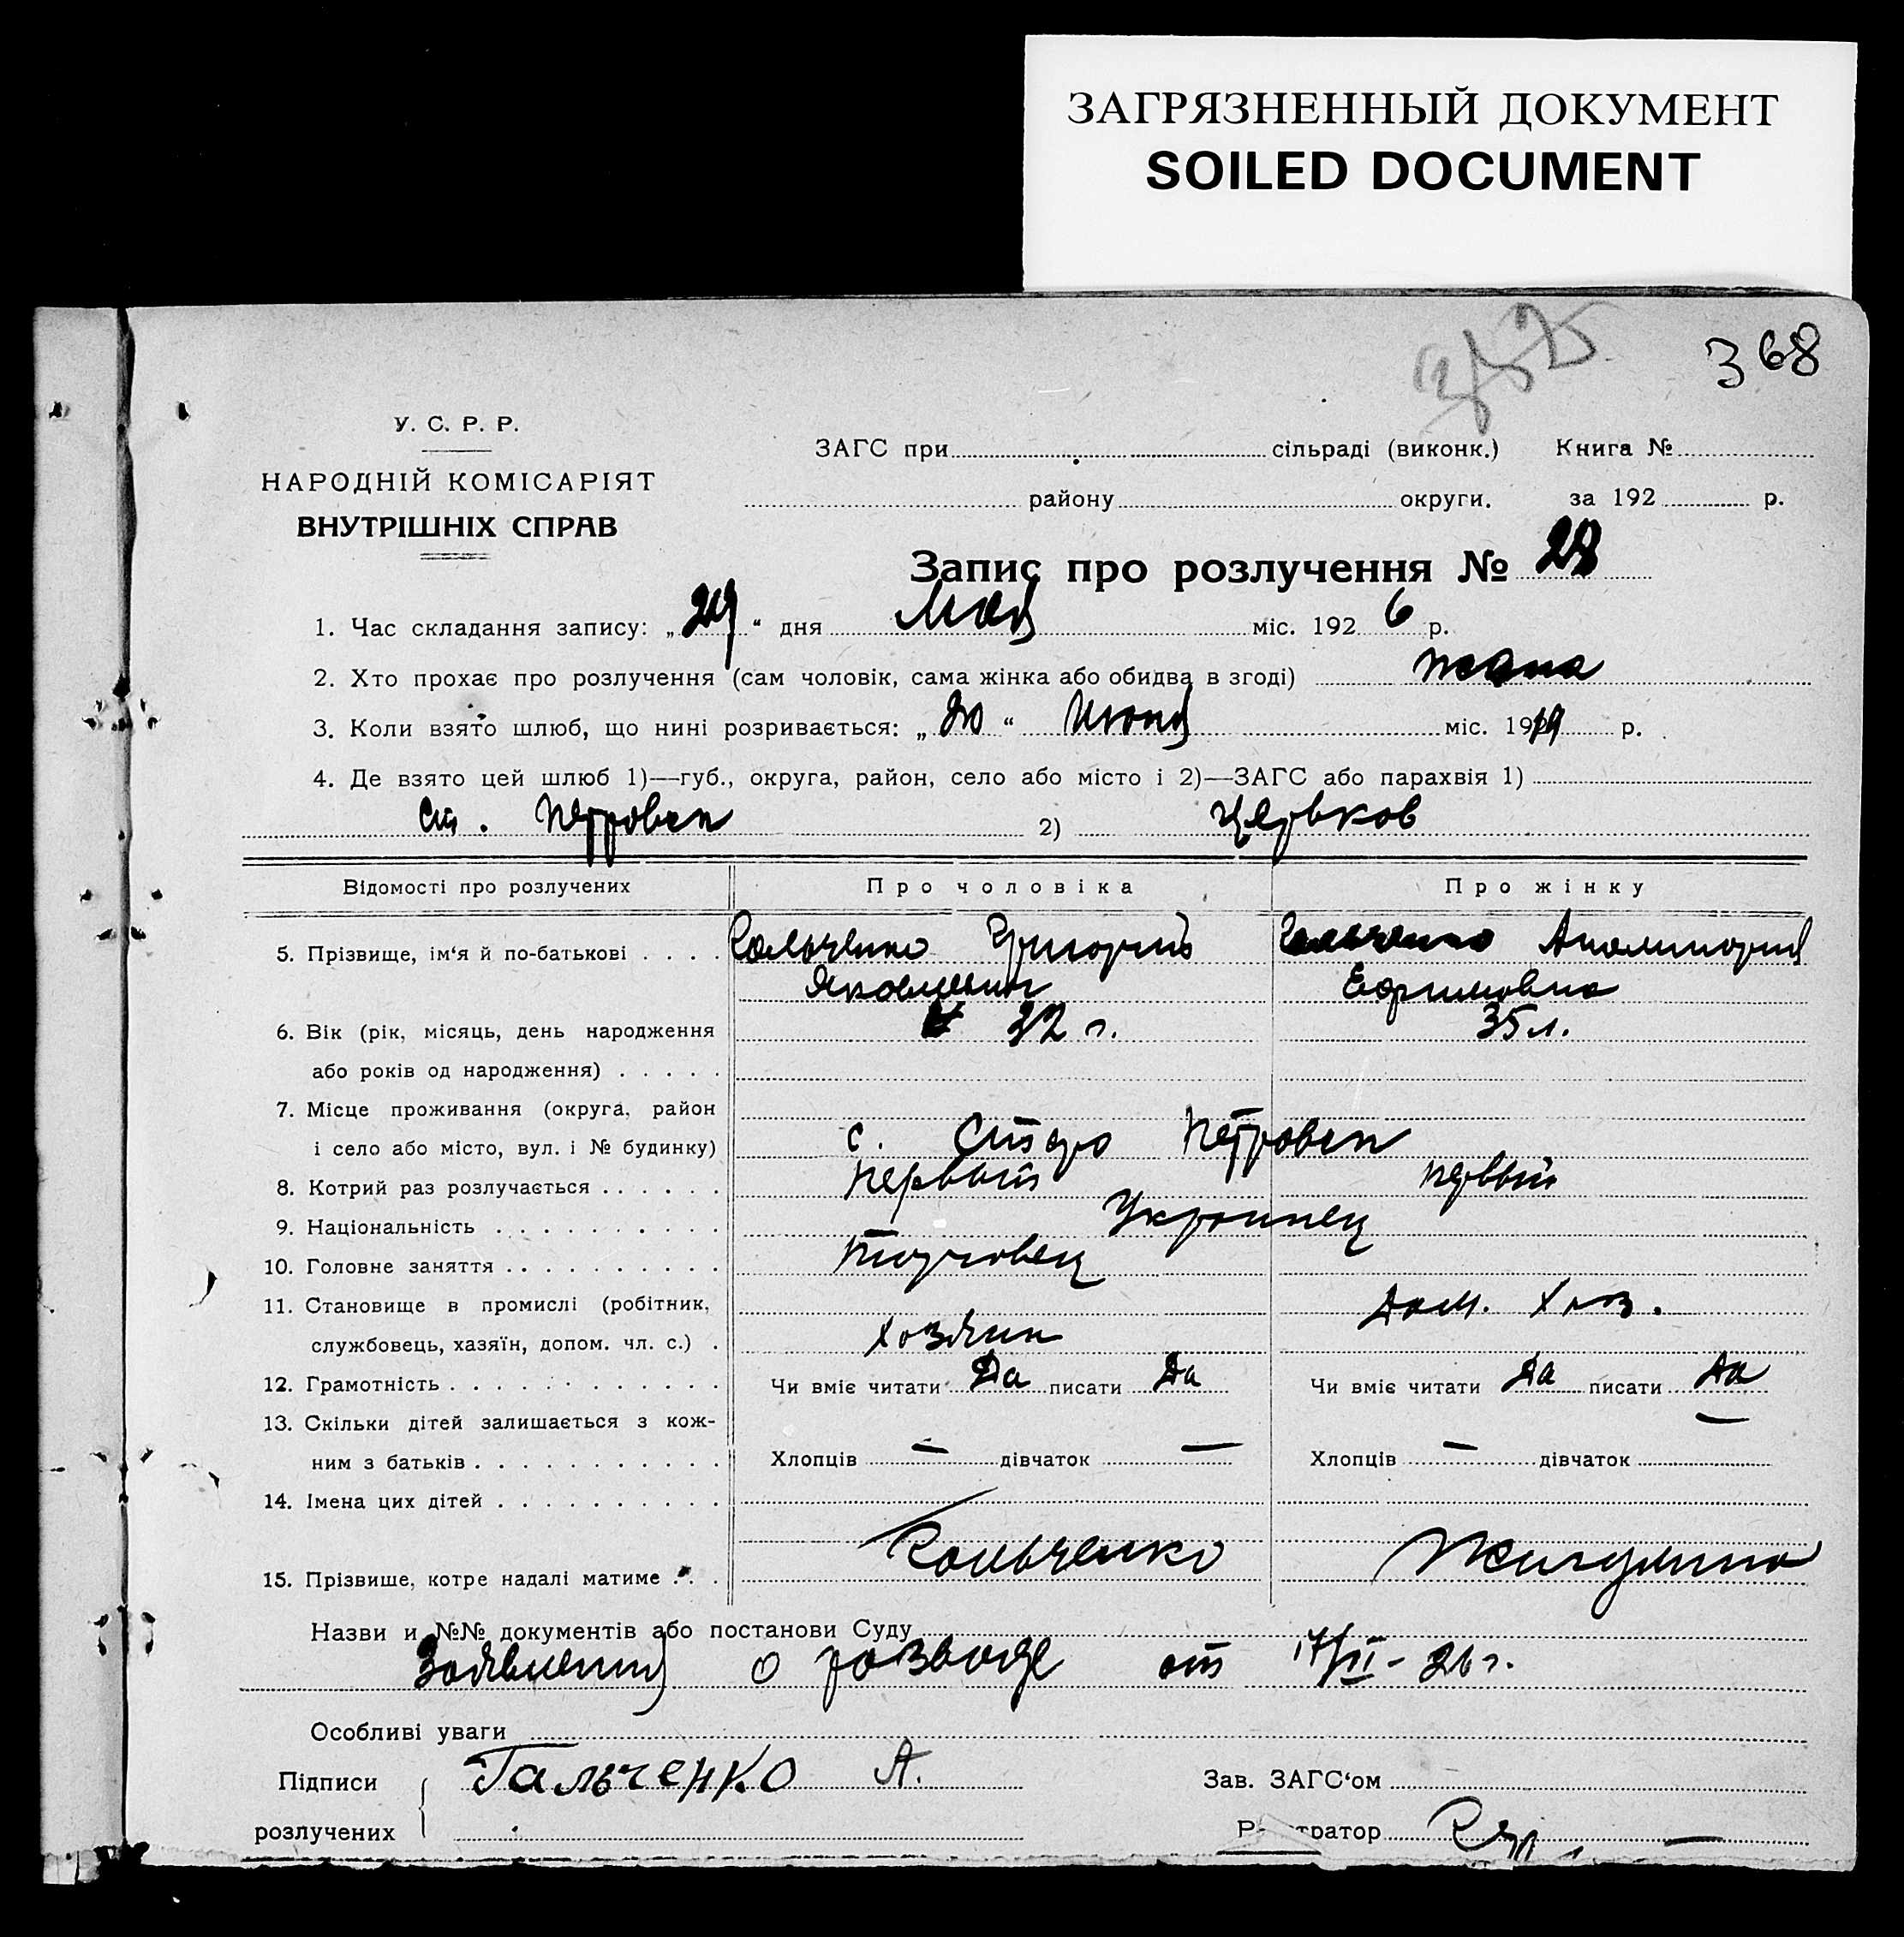 ЗАГРЯЗНЕННЫЙ ДОКУМЕНТ
SOILED DOCUMENT
368
У. С. Р. Р.
НАРОДНІЙ КОМІСАРІЯТ
ВНУТРІШНІХ СПРАВ
ЗАГС при сільраді (виконк.) Книга №
району округи. за 192 р.
Запис про розлучення № 28
1. Час складання запису: „29“ дня Мая міс. 1926 р.
2. Хто прохає про розлучення (сам чоловік, сама жінка або обидва в згоді) жена
3. Коли взято шлюб, що нині розривається: „20“ Июня міс. 1919 р.
4. Де взято цей шлюб 1)—губ., округа, район, село або місто і 2)—ЗАГС або парахвія 1)
ст. Петровен 2) церьков
Відомості про розлучених Про чоловіка Про жінку
5. Прізвище, ім‘я й по-батькові Гальченко Григорий Гальченко Аполинария
Яковлевич Ефимовна
6. Вік (рік, місяць, день народження 32 г. 35 л.
або років од народження)
7. Місце проживання (округа, район
і село або місто, вул. і № будинку) с. Старо Петровен
8. Котрий раз розлучається первый первый
9. Національність Украинец
10. Головне заняття торговец
11. Становище в промислі (робітник, Дом. Хоз.
службовець, хазяїн, допом. чл. с.) хозяин
12. Грамотність Чи вміє читати Да писати Да Чи вміє читати Да писати Да
13. Скільки дітей залишається з кож- —
ним з батьків Хлопців — дівчаток — Хлопців — дівчаток
14. Імена цих дітей
15. Прізвише, котре надалі матиме Гальченко Жигулина
Назви и №№ документів або постанови Суду
Заявления о разводе от 17/II-26 г.
Особливі уваги
Підписи Гальченко А. Зав. ЗАГС‘ом
розлучених Р тратор